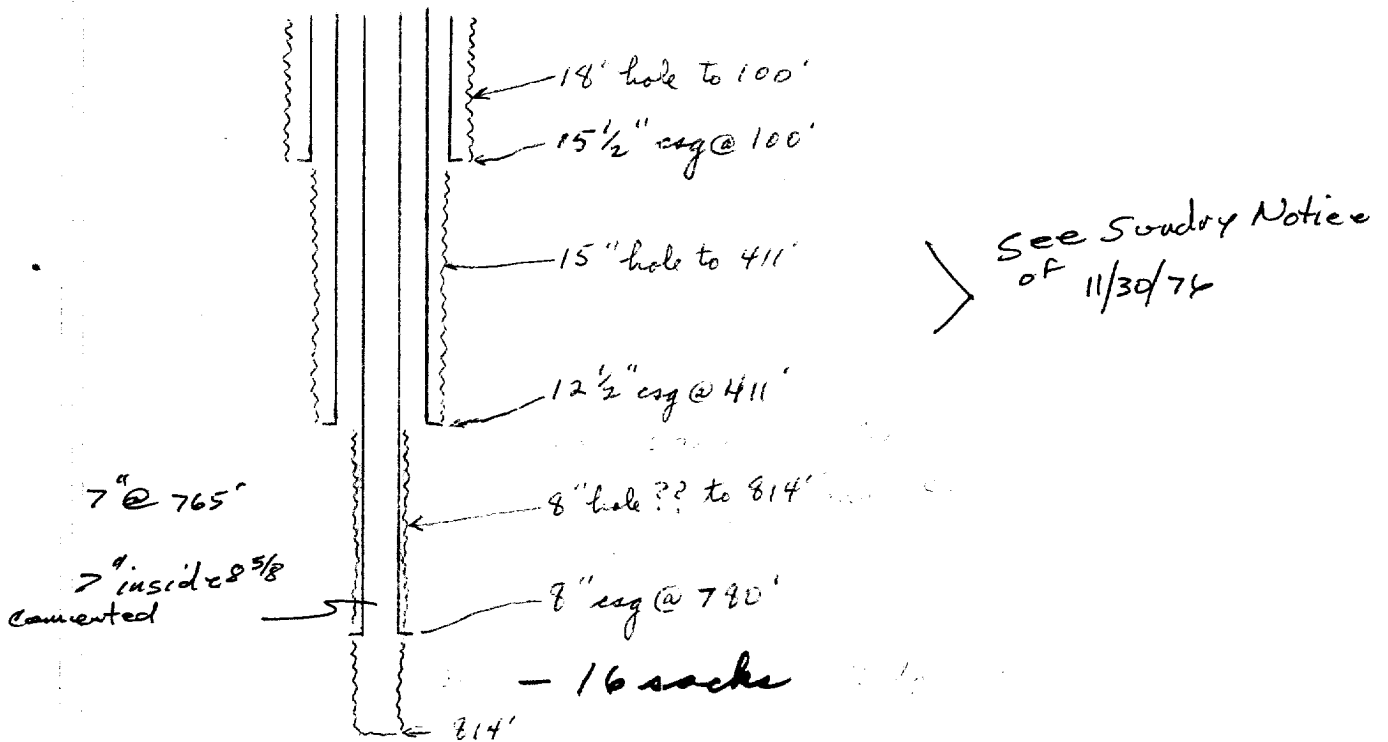 18' hole to 100'
15 1/2" csg @ 100'
15" hole to 411'
See Sundry Notice
of 11/30/76
12 1/2" csg @ 411'
7" @ 765'
8" hole ?? to 814'
7" inside 8 5/8
cemented
8" csg @ 780'
- 16 sacks
814'